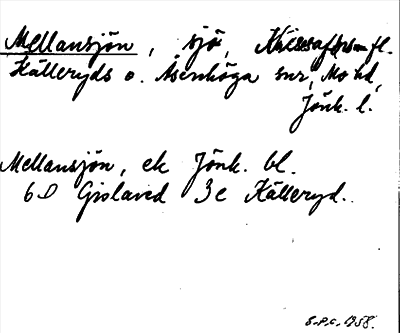 Mellansjön, sjö,
Källeryds o. Åsenhöga snr, Mo hd,
Jönk. l.
Mellansjön, ek Jönk. bl.
6D Gislaved 3c Källeryd.
1958.